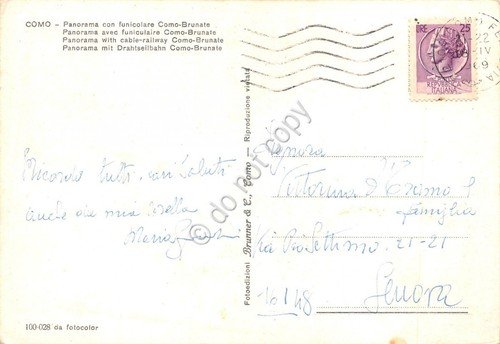 COMO - Panorama con funicolare Como-Brunate
Panorama avec funiculaire Como-Brunate
Panorama with cable-railway Como-Brunate
Panorama mit Drahtseilbahn Como-Brunate
LIRE 25
REPUBBLICA
ITALIANA
22
XIV
69
Ricordo tutti, cari saluti
anche da mia sorella
Maria
Signora
Vittorina D'
famiglia
Via 21-21
16148
Genova
Fotoedizioni Brunner & C., Como - Riproduzione vietata
100-028 da fotocolor
do not copy